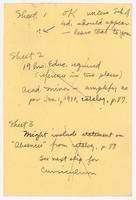 Sheet 1 OK unless Sch of
Ed. should appear
— leave that to you
Sheet 2
19 hrs. Educ. required
(reference in two places)
Acad. minor — amplify as
per Jan. 1, 1970, catalog, p. 87.
Sheet 3
Might include statement on
"Absences" from catalog, p. 88
See next slip for
Curriculum